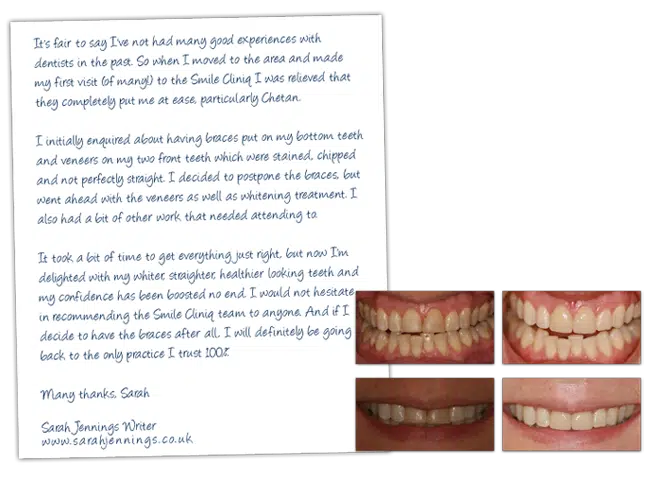 It's fair to say I've not had many good experiences with
dentists in the past. So when I moved to the area and made
my first visit (of many!) to the Smile Cliniq I was relieved that
they completely put me at ease, particularly Chetan.
I initially enquired about having braces put on my bottom teeth
and veneers on my two front teeth which were stained, chipped
and not perfectly straight. I decided to postpone the braces, but
went ahead with the veneers as well as whitening treatment. I
also had a bit of other work that needed attending to.
It took a bit of time to get everything just right, but now I'm
delighted with my whiter, straighter, healthier looking teeth and
my confidence has been boosted no end. I would not hesitate
in recommending the Smile Cliniq team to anyone. And if I
decide to have the braces after all, I will definitely be going
back to the only practice I trust 100%.
Many thanks, Sarah
Sarah Jennings Writer
www.sarahjennings.co.uk